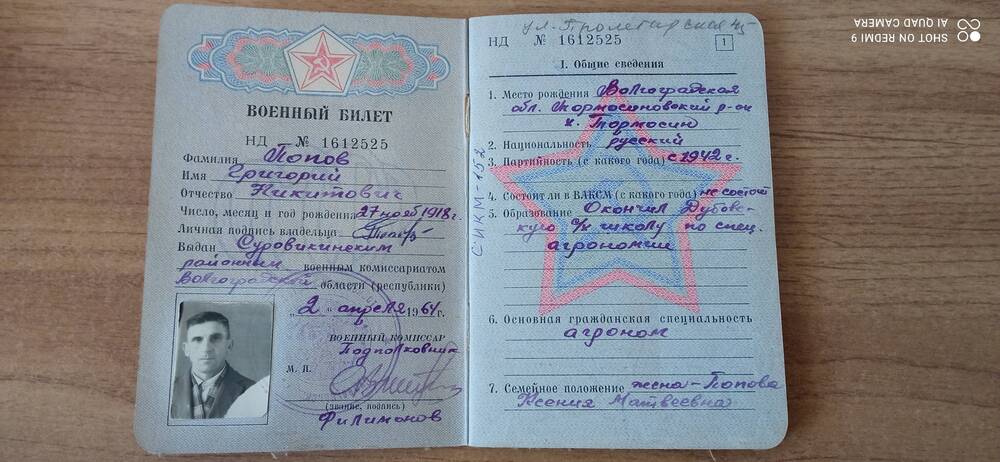 ВОЕННЫЙ БИЛЕТ
НД № 1612525
Фамилия Попов
Имя Григорий
Отчество Никитович
Число, месяц и год рождения 27 нояб 1918 г.
Личная подпись владельца
Выдан Суровикинским
районным военным комиссариатом
Волгоградской области (республики)
„2" апреля 1964 г.
ВОЕННЫЙ КОМИССАР
Подполковник
М. П.
(звание, подпись)
Филимонов
ул. Пролетарская 45
НД № 1612525
1
I. Общие сведения
1. Место рождения Волгоградская
обл. Тормосиновский р-он
х. Тормосин
2. Национальность русский
3. Партийность (с какого года) с 1942 г.
4. Состоит ли в ВЛКСМ (с какого года) не состоит
5. Образование Окончил Дубовс-
кую с/х школу по спец.
агрономии
6. Основная гражданская специальность
агроном
7. Семейное положение жена - Попова
Ксения Матвеевна
СИКМ-152
SHOT ON REDMI 9
AI QUAD CAMERA